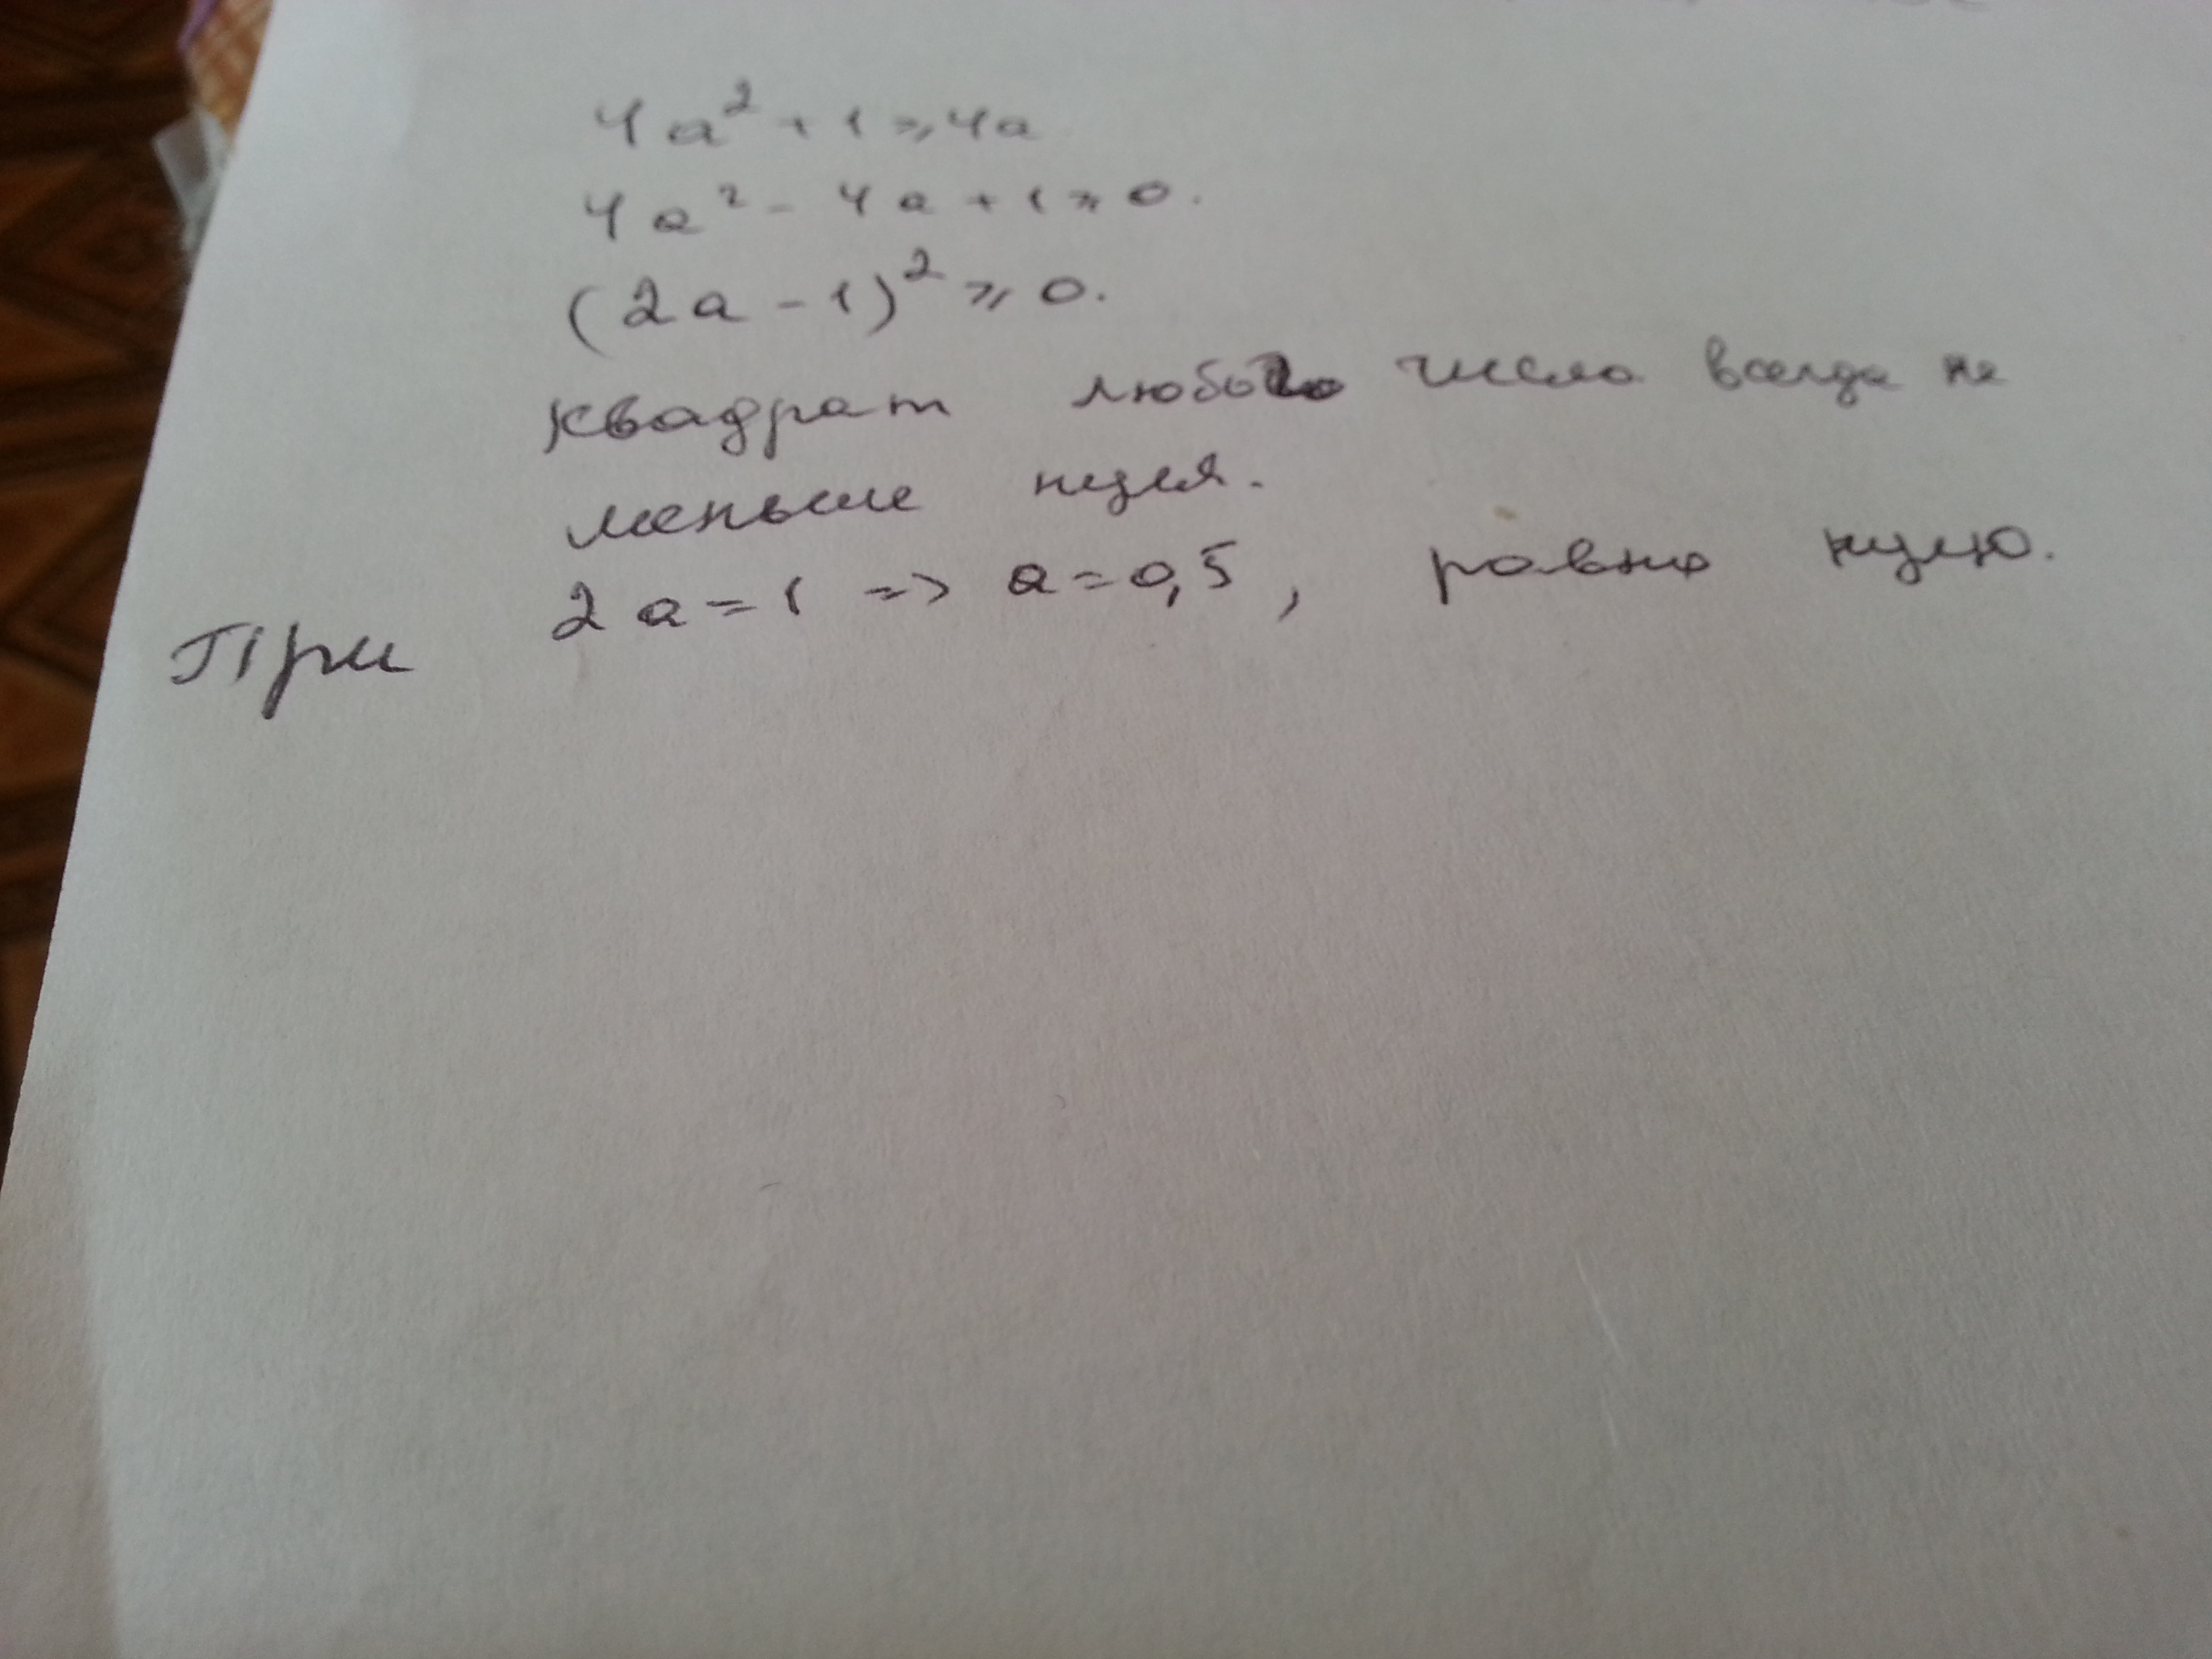 4a² + 1 ≥ 4a
4a² - 4a + 1 ≥ 0.
(2a - 1)² ≥ 0.
квадрат любого числа всегда не
меньше нуля.
При 2a = 1 => a = 0,5, равно нулю.